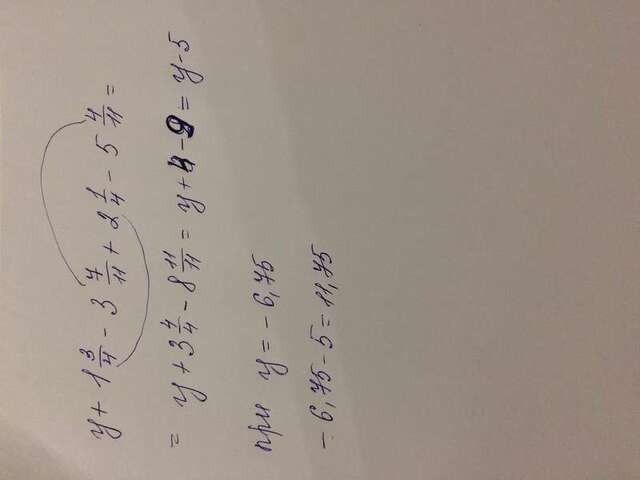 y + 1 3/4 - 3 7/11 + 2 1/4 - 5 4/11 =
= y + 3 4/4 - 8 11/11 = y + 4 - 9 = y - 5
при y = - 6,75
- 6,75 - 5 = 11,75